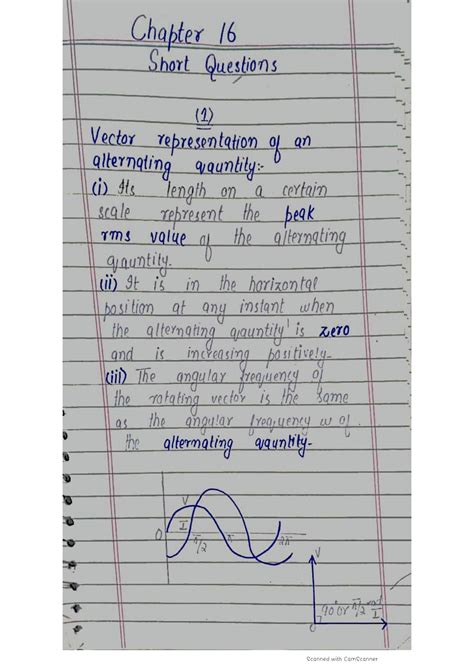 Chapter 16
Short Questions
(1)
Vector representation of an
alternating qauntity:-
(i) Its length on a certain
scale represent the peak
rms value of the alternating
qauntity.
(ii) It is in the horizontal
position at any instant when
the alternating qauntity is zero
and is increasing positively.
(iii) The angular frequency of
the rotating vector is the same
as the angular frequency ω of
the alternating qauntity.
V
I
O
π/2
π
2π
V
90° or π/2 rad
I
O
Scanned with CamScanner